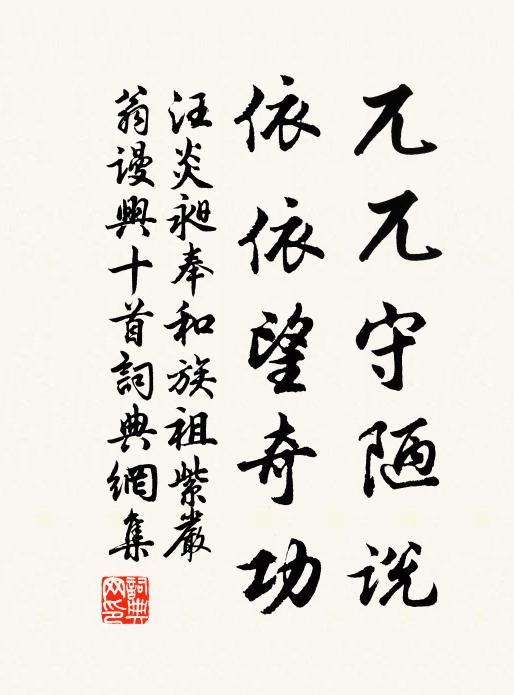 兀兀守陋说
依依望奇功
汪炎昶奉和族祖紫巖
翁谩興十首詞典網集
詞典
网印